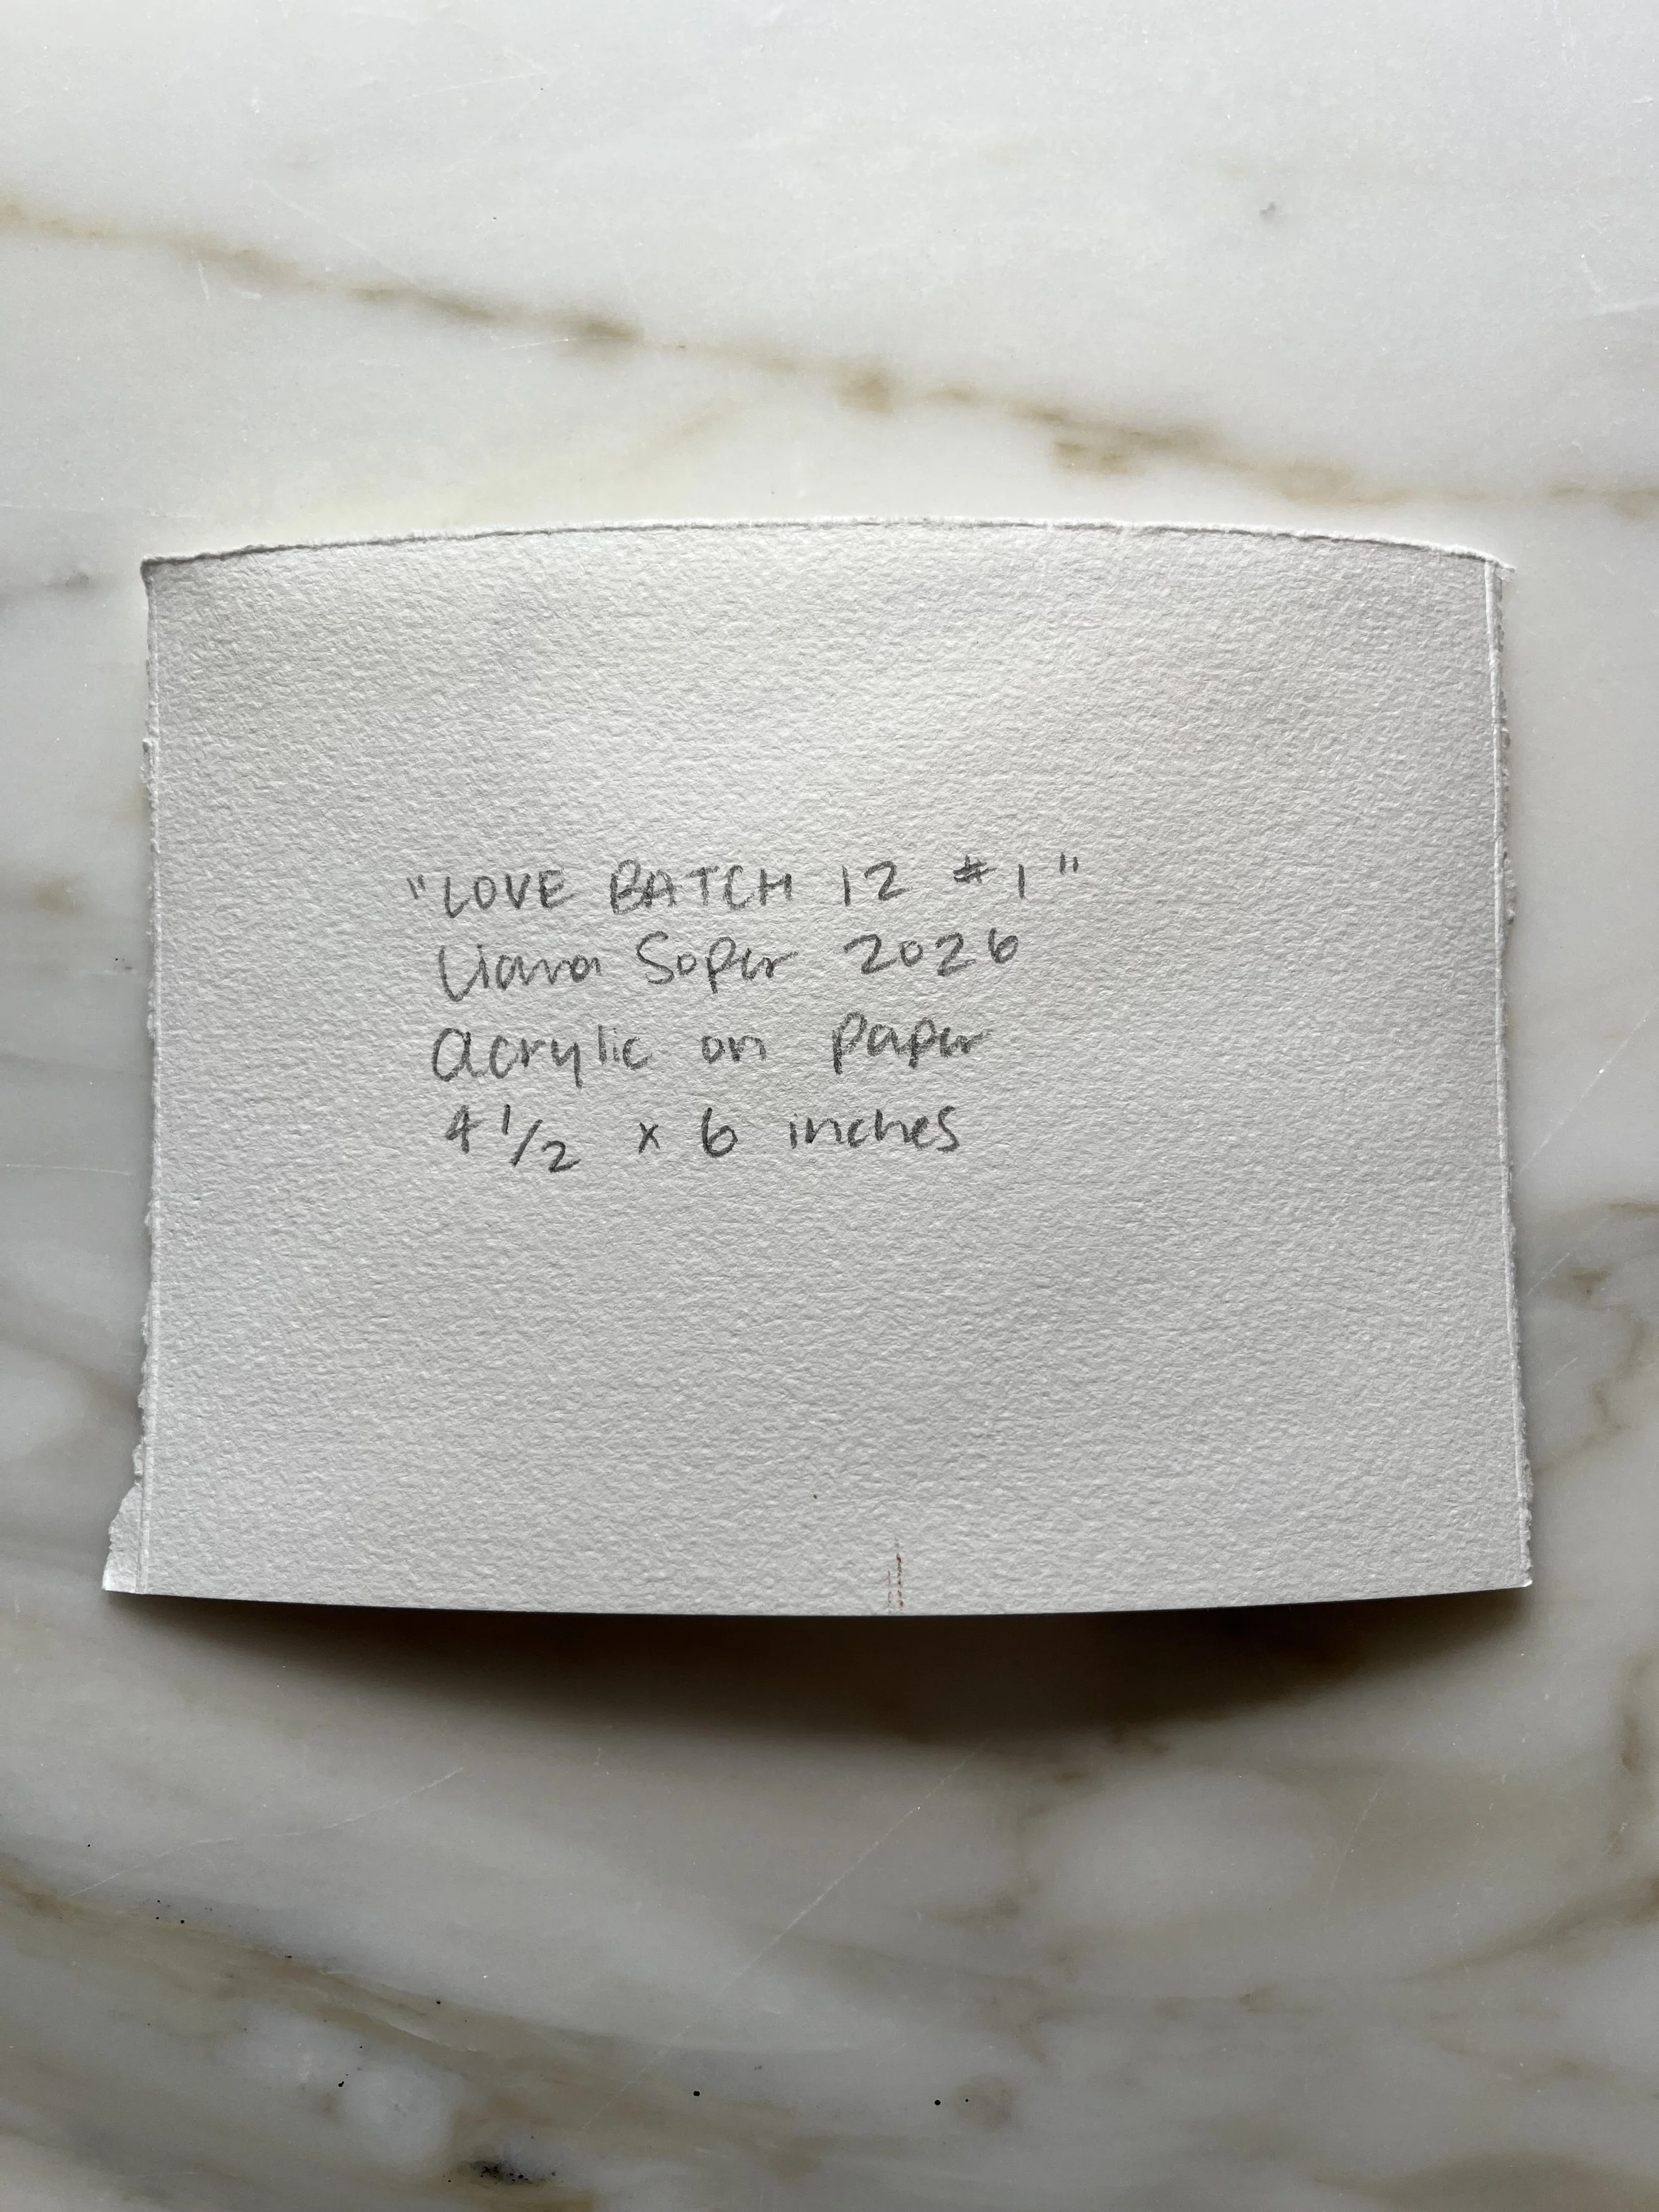 "LOVE BATCH 12 #1"
Liana Soper 2026
acrylic on paper
4 1/2 x 6 inches